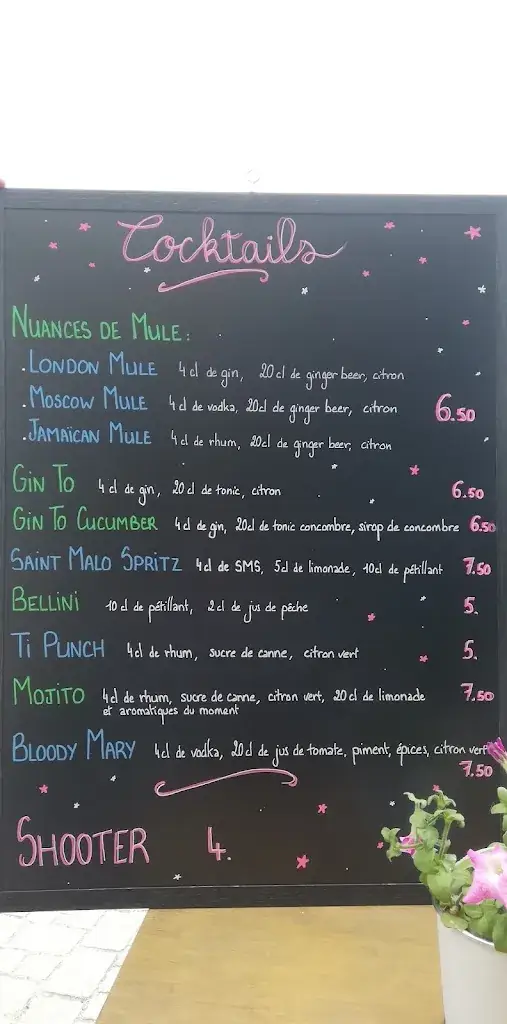 Cocktails
NUANCES DE MULE :
. LONDON MULE 4 cl de gin, 20 cl de ginger beer, citron
. MOSCOW MULE 4 cl de vodka, 20cl de ginger beer, citron 6.50
. JAMAÏCAN MULE 4 cl de rhum, 20cl de ginger beer, citron
GIN TO 4 cl de gin, 20 cl de tonic, citron 6.50
GIN TO CUCUMBER 4 cl de gin, 20cl de tonic concombre, sirop de concombre 6.50
SAINT MALO SPRITZ 4 cl de SMS, 5cl de limonade, 10cl de pétillant 7.50
BELLINI 10 cl de pétillant, 2 cl de jus de pêche 5.
TI PUNCH 4cl de rhum, sucre de canne, citron vert 5.
MOJITO 4cl de rhum, sucre de canne, citron vert, 20 cl de limonade 7.50
et aromatiques du moment
BLOODY MARY 4cl de vodka, 20cl de jus de tomate, piment, épices, citron vert
7.50
SHOOTER 4.